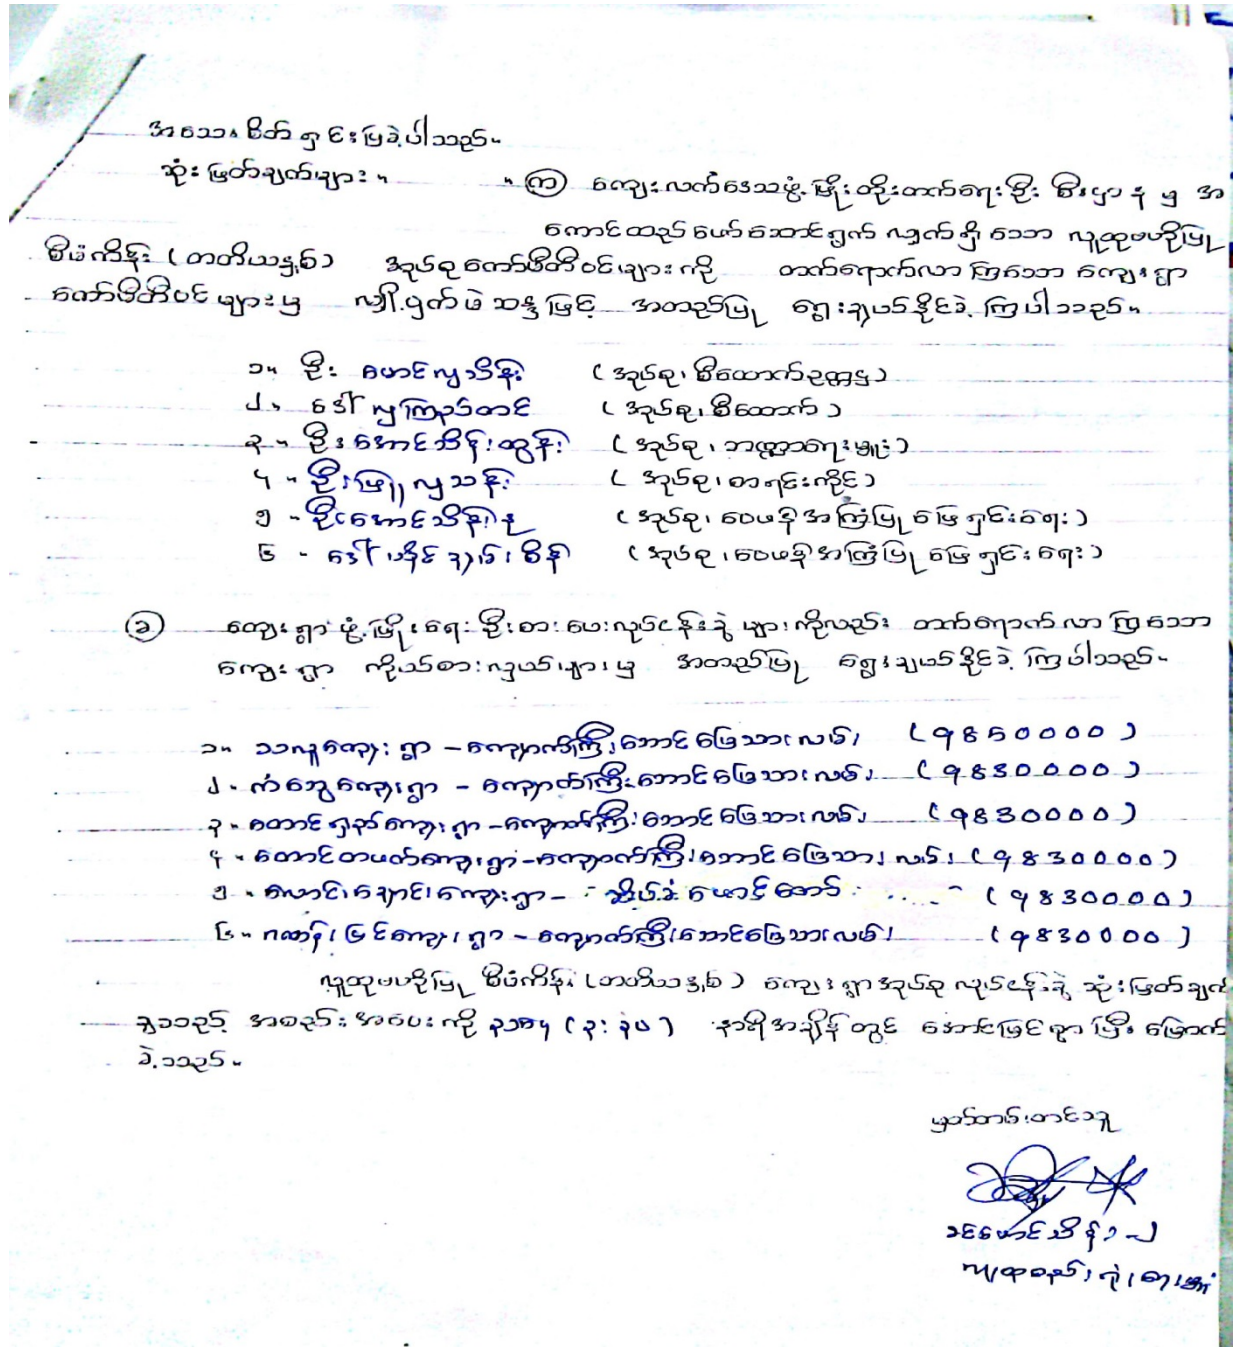 အသေးစိတ် ရှင်းပြခဲ့ပါသည်။
ဆုံးဖြတ်ချက်များ ။ ။ (က) ကျေးလက်ဒေသဖွံ့ဖြိုးတိုးတက်ရေးဦးစီးဌာန မှ အ
ကောင်ထည်ဖော်ဆောင်ရွက် လျှက်ရှိသော လူထုဗဟိုပြု
စီမံကိန်း (တတိယနှစ်) အုပ်စုကော်မီတီဝင်များကို တက်ရောက်လာကြသော ကျေးရွာ
ကော်မီတီဝင်များမှ လျှို့ဝှက်မဲဆန္ဒဖြင့် အတည်ပြု ရွေးချယ်နိုင်ခဲ့ကြပါသည်။
၁။ ဦးမောင်လှသိန်း (အုပ်စု၊ စီထောက်ဥက္ကဋ္ဌ)
၂။ ဒေါ်လှကြည်တင် (အုပ်စု၊ စီထောက်)
၃။ ဦးအောင်သိန်းထွန်း (အုပ်စု၊ ဘဏ္ဍာရေးမှူး)
၄။ ဦးဖြူလှသန်း (အုပ်စု၊ စာရင်းကိုင်)
၅။ ဦးအောင်သိန်းနု (အုပ်စု၊ ဝေဖန်အကြံပြု ဖြေရှင်းရေး)
၆။ ဒေါ်ခိုင်နှမ်းစိန် (အုပ်စု၊ ဝေဖန်အကြံပြု ဖြေရှင်းရေး)
(ခ) ကျေးရွာဖွံ့ဖြိုးရေး ဦးစားပေးလုပ်ငန်းခွဲများကိုလည်း တက်ရောက်လာကြသော
ကျေးရွာ ကိုယ်စားလှယ်များမှ အတည်ပြု ရွေးချယ်နိုင်ခဲ့ကြပါသည်။
၁။ သလူကျေးရွာ - ကျောက်ကြီးဘောင်ဖြေသားလမ်း (၅860000)
၂။ ကံဘွေကျေးရွာ - ကျောက်ကြီးဘောင်ဖြေသားလမ်း (၅830000)
၃။ တောင်ရှည်ကျေးရွာ - ကျောက်ကြီးဘောင်ဖြေသားလမ်း (၅830000)
၄။ တောင်တမတ်ကျေးရွာ - ကျောက်ကြီးဘောင်ဖြေသားလမ်း (၅830000)
၅။ ယောင်းချောင်းကျေးရွာ - (၅830000)
၆။ ဂဏန်းမြင်ကျေးရွာ - ကျောက်ကြီးဘောင်ဖြေသားလမ်း (၅830000)
လူထုဗဟိုပြု စီမံကိန်း (တတိယနှစ်) ကျေးရွာအုပ်စု လုပ်ငန်းခွဲ ဆုံးဖြတ်ချက်
ချသည့် အစည်းအဝေးကို (၃:၃၀) နာရီအချိန်တွင် အောင်မြင်စွာ ပြီးမြောက်
ခဲ့သည်။
မှတ်တမ်းတင်သူ
ခင်မောင်သိန်း - ၂